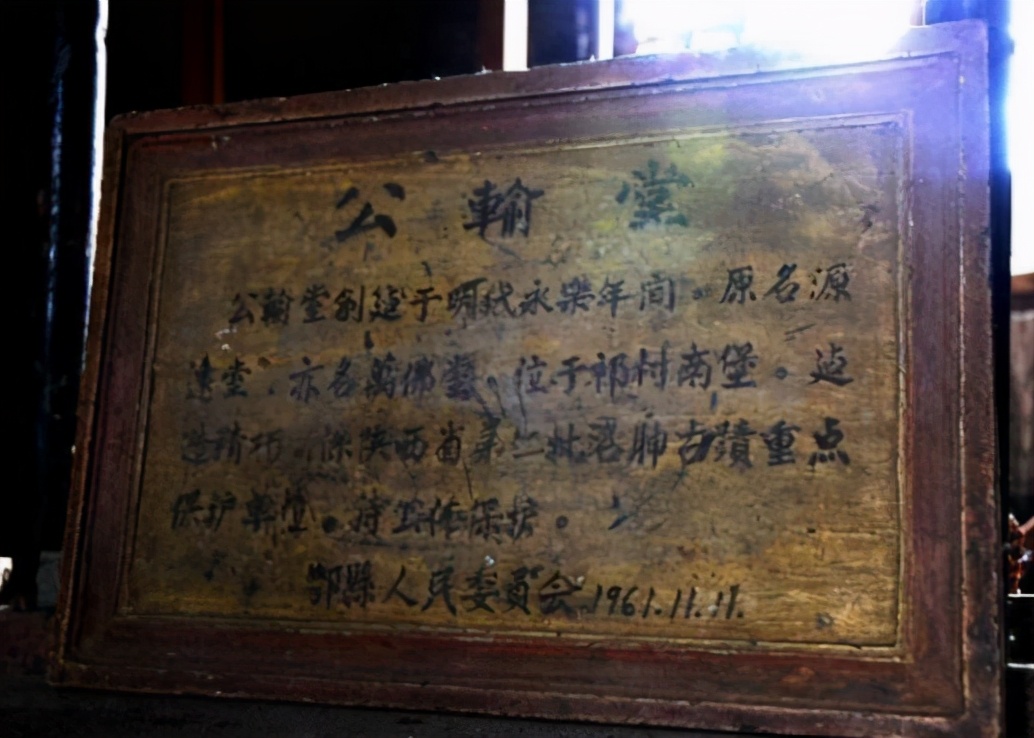 公輸堂
公輸堂創建于明代永樂年间。原名源
達堂.亦名萬佛堂。位于祁村南堡。建
造精巧.係陕西省第二批名胜古蹟重点
保护單位。特立佈保护。
鄠縣人民委員会.1961.11.11.